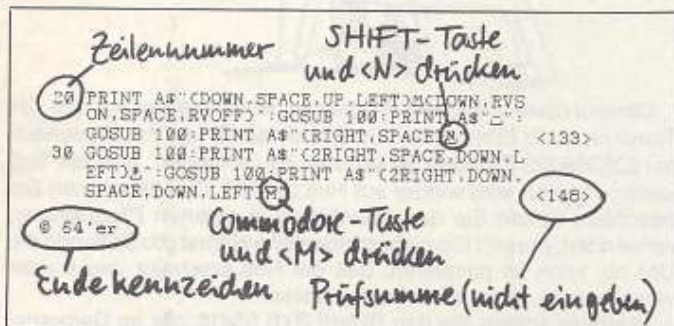 Zeilennummer
SHIFT-Taste
und <N> drücken
20 PRINT A$"(DOWN,SPACE,UP,LEFT)M(DOWN,RVS
ON,SPACE,RVOFF)":GOSUB 100:PRINT A$"":
GOSUB 100:PRINT A$"(RIGHT,SPACE)M" <133>
30 GOSUB 100:PRINT A$"(2RIGHT,SPACE,DOWN,L
EFT)":GOSUB 100:PRINT A$"(2RIGHT,DOWN,
SPACE,DOWN,LEFT)M" <148>
© 64'er
Commodore-Taste
und <M> drücken
Endekennzeichen
Prüfsumme (nicht eingeben)